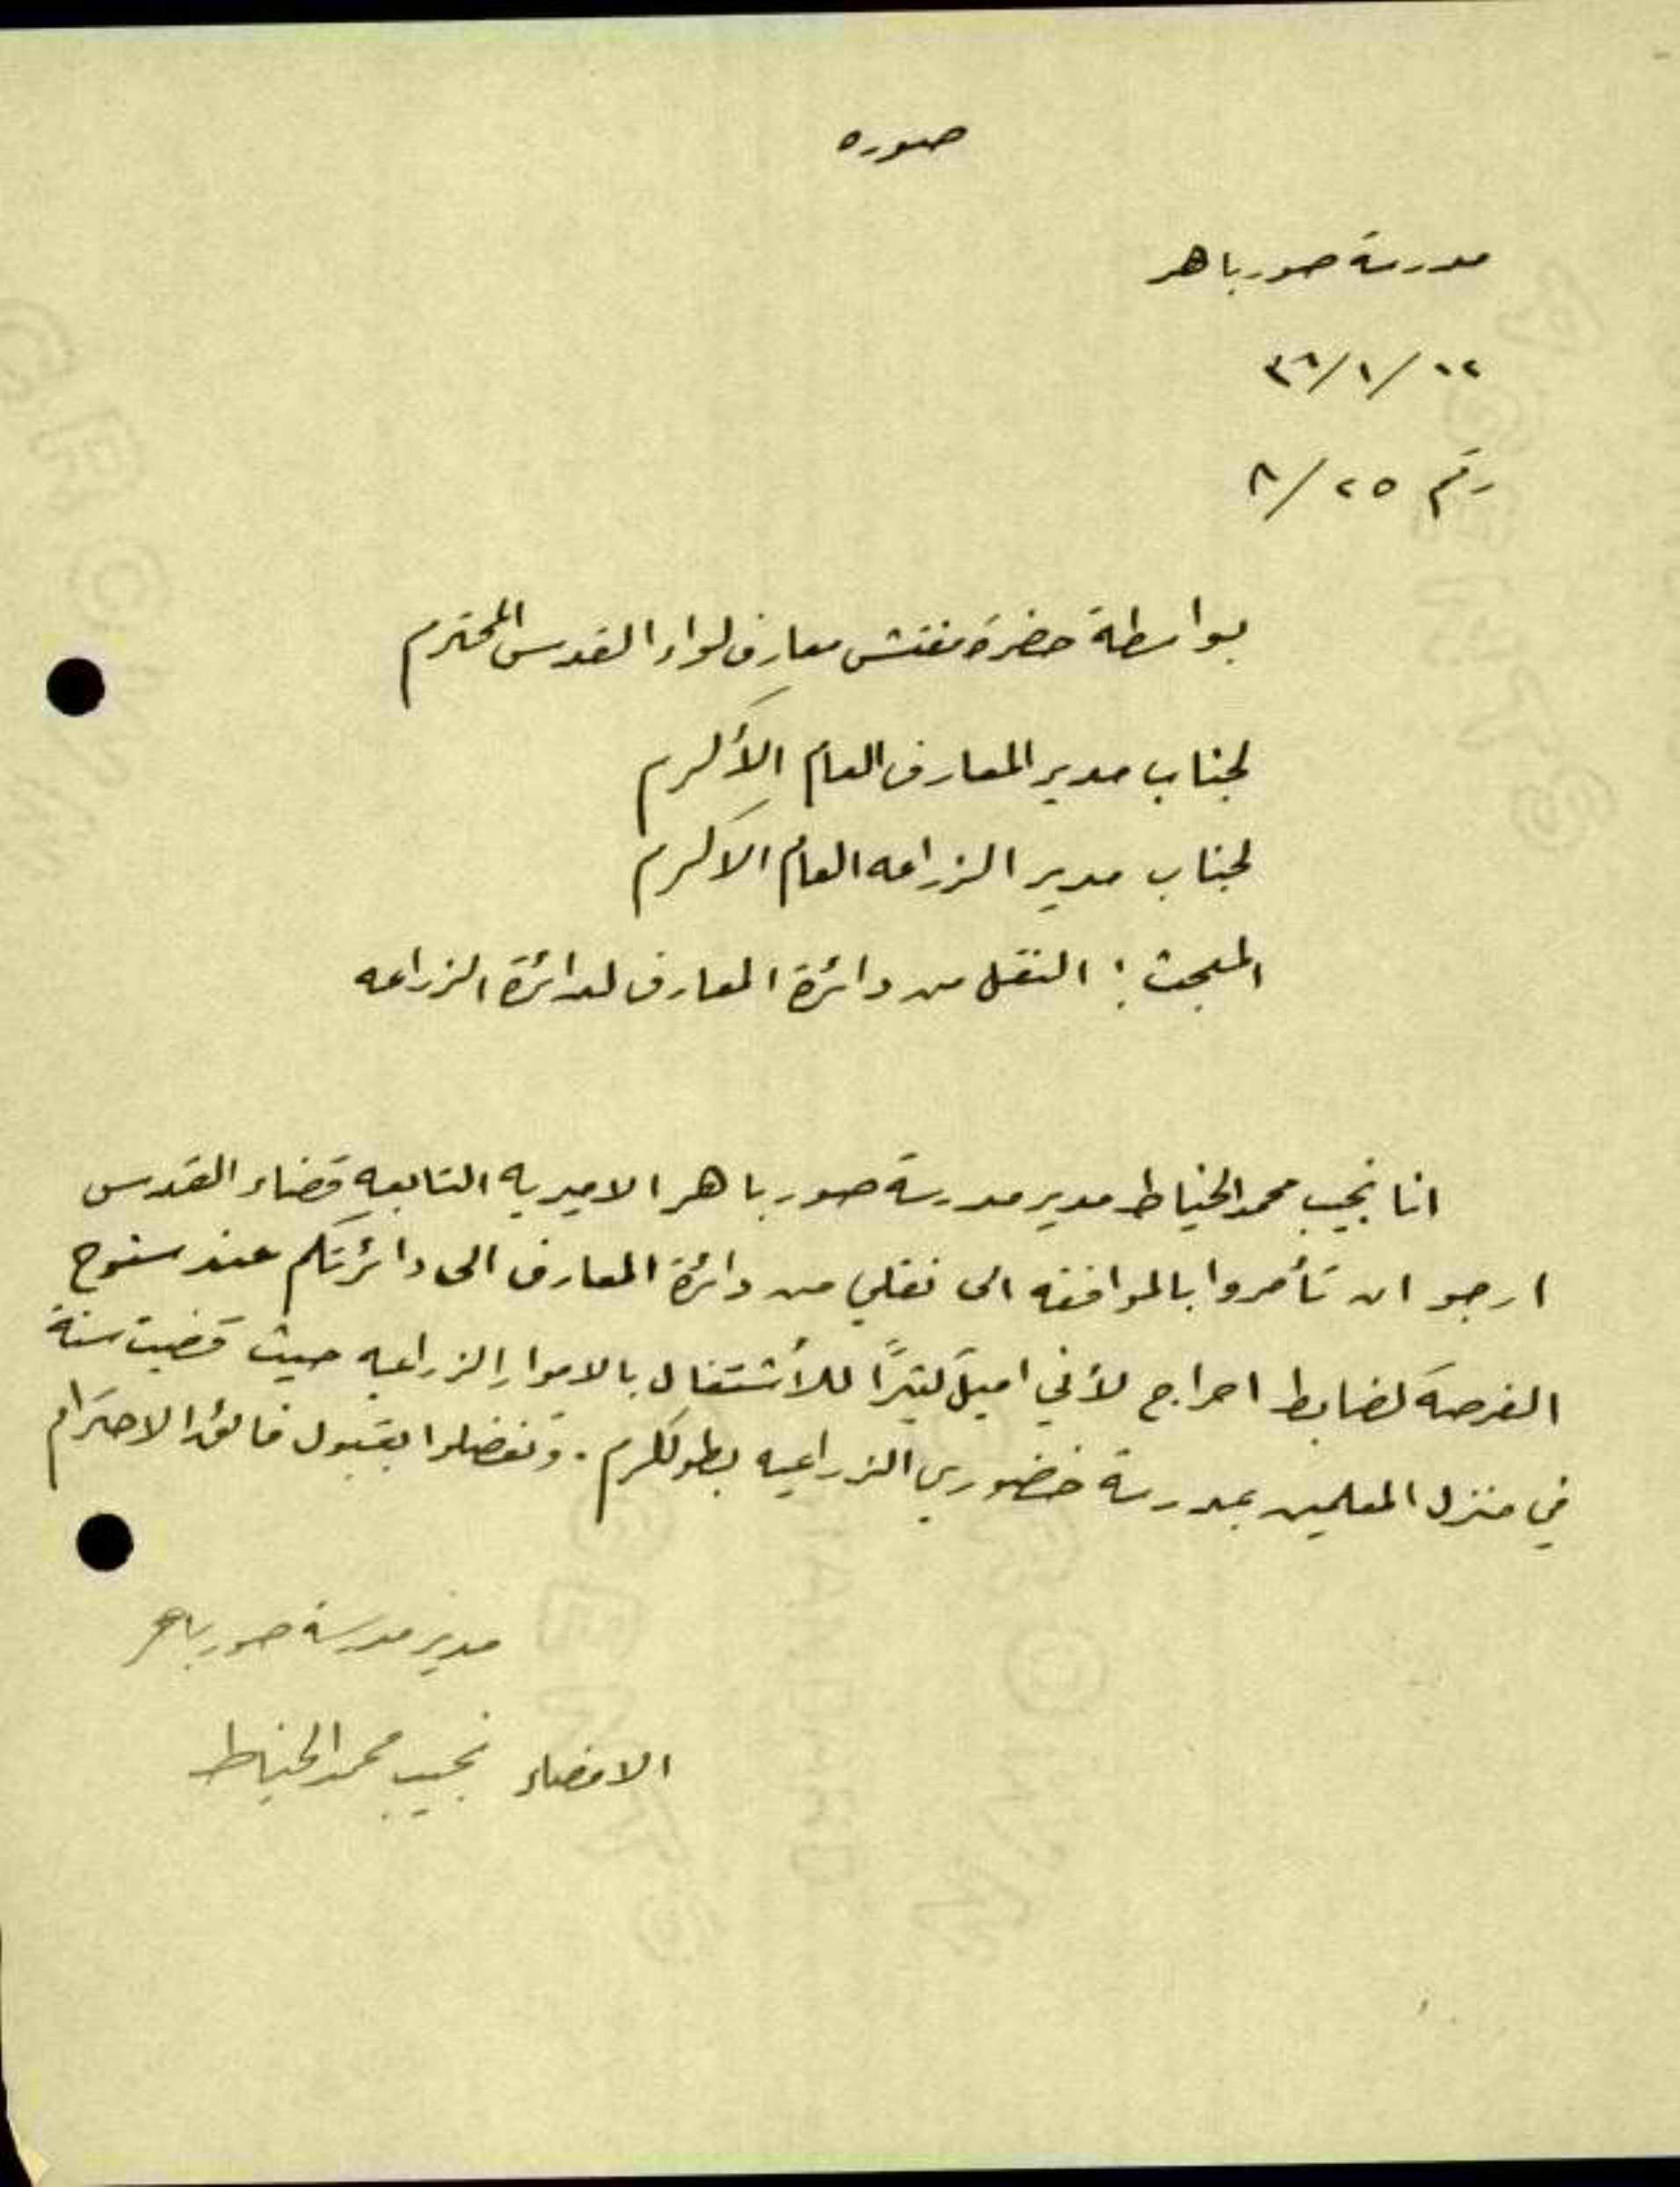 صوره
مدرسة صور باهر
١٢/١/٣٨
رقم ٢٥/٨
بواسطة حضرة مفتش معارف لواء القدس المحترم
لجناب مدير المعارف العام الأكرم
لجناب مدير الزراعه العام الاكرم
المبحث : النقل من دائرة المعارف لدائرة الزراعه
انا نجيب محمد الخياط مدير مدرسة صور باهر الاميريه التابعه قضاء القدس
ارجو ان تأمروا بالموافقه الى نقلي من دائرة المعارف الى دائرتكم عند سنوح
الفرصة لضابط احراج لأني اميل كثيرًا للأشتغال بالامور الزراعيه حيث قضيت سنة
في منزل المعلمين بمدرسة خضوري الزراعيه بطولكرم . وتفضلوا بقبول فائق الاحترام
مدير مدرسة صور باهر
الامضاء نجيب محمد الخياط